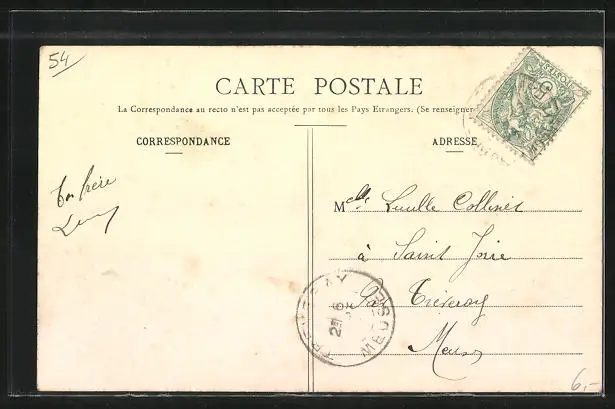 54
CARTE POSTALE
La Correspondance au recto n'est pas acceptée par tous les Pays Etrangers. (Se renseigner
CORRESPONDANCE
ADRESSE
Ton frère
Melle Collinet
à Saint Joire
Par Tréveray
Meuse
TREVERAY
MEUSE
6,-